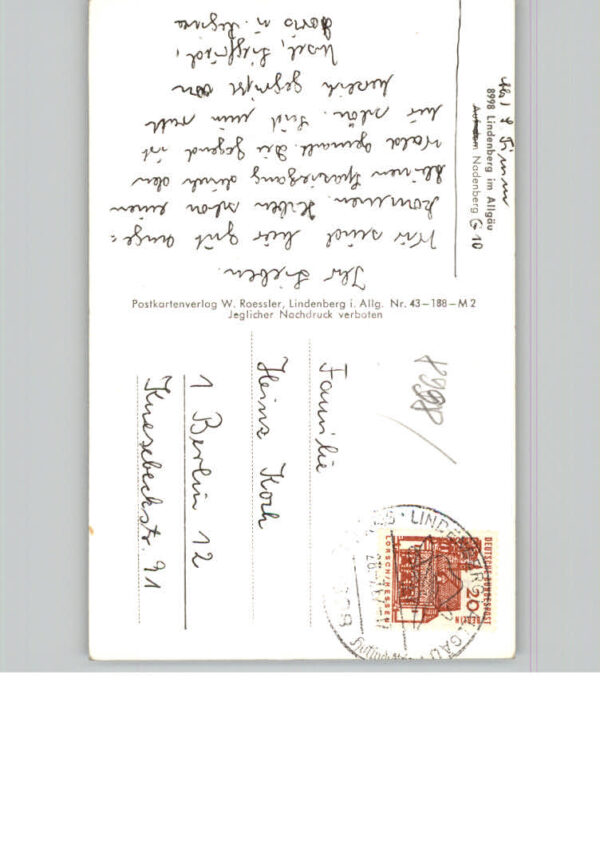 8998 Lindenberg im Allgäu
Auf dem Nadenberg G 10
Ihr Lieben.
Wir sind hier gut ange=
kommen. Haben schon einen
kleinen Spaziergang durch den
Wald gemacht. Die Gegend ist
schön. Seid nun recht
herzlich gegrüßt von
Ursel, Siegfried,
Doris u. Regina
Postkartenverlag W. Roessler, Lindenberg i. Allg. Nr. 43–188–M 2
Jeglicher Nachdruck verboten
Familie
Heinz Koch
1 Berlin 12
Knesebeckstr. 91
8998
DEUTSCHE BUNDESPOST
BERLIN
20
LORSCH/HESSEN
LINDENBERG